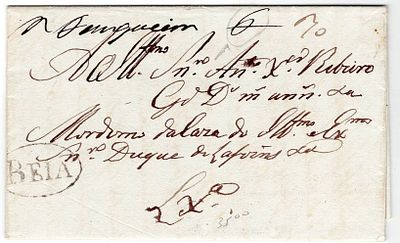 6 70
Illmo Snr. Anto. Xer. Ribeiro
Gde. Ds. ms. anns. &a
Mordomo da Caza do Illmo e Exmo
Snro Duque de Lafoins &a
BEJA
Lxa
3500